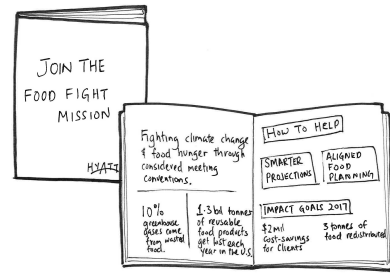 JOIN THE
FOOD FIGHT
MISSION
HYATT
Fighting climate change
& food hunger through
considered meeting
conventions.
10%
greenhouse
gases come
from wasted
food.
1.3 bil tonnes
of reusable
food products
get lost each
year in the U.S.
HOW TO HELP
SMARTER
PROJECTIONS
ALIGNED
FOOD
PLANNING
IMPACT GOALS 2017
$2mil
cost-savings
for Clients
3 tonnes of
food redistributed